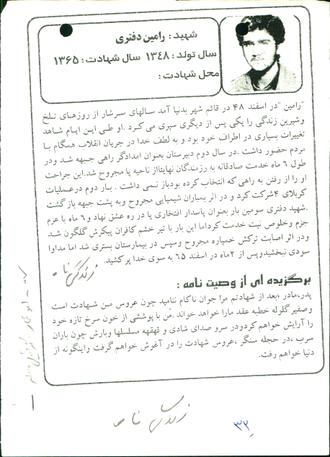 شهید : رامین دفتری
سال تولد : ۱۳۴۸ سال شهادت : ۱۳۶۵
محل شهادت :
"رامین" در اسفند ۴۸ در قائم شهر بدنیا آمد سالهای سرشار از روزهای تلخ
وشیرین زندگی را یکی پس از دیگری سپری می کرد. او طی این ایام شاهد
تغییرات بسیاری در اطراف خود بود و به لطف خدا در جریان انقلاب همگام با
مردم حضور داشت. در سال دوم دبیرستان بعنوان امدادگر راهی جبهه شد ودر
طول ۶ ماه خدمت صادقانه به رزمندگان نهایتا از ناحیه پا مجروح شد. این جراحت
او را از رفتن به راهی که انتخاب کرده بود باز نمی داشت . بار دوم در عملیات
کربلای ۴ شرکت کرد و در اثر بمباران شیمیایی مجروح وبه پشت جبهه بازگشت
. شهید دفتری سومین بار بعنوان پاسدار افتخاری پا در ره عشق نهاد و ۶ ماه با عزم
جزم وخلوص نیت خدمت کرد اما این بار با تیر خشم کافران پیکرش گلگون شد
ودر اثر اصابت ترکش خمپاره مجروح وسپس در بیمارستان بستری شد اما مداوا
سودی نبخشید وپس از ۲ ماه در اسفند ۶۵ به سوی خدا پر کشید.
زندگی نامه
برگزیده ای از وصیت نامه :
پدر، مادر، بعد از شهادتم مرا جوان ناکام ننامید چون عروس من شهادت است
وصفیر گلوله خطبه عقد مارا خواهد خواند. من با پوششی از خون سرخ تازه خود
را آرایش خواهم کرد ودر سرو صدای شادی و قهقهه مسلسلها وبارش چون باران
سرب ، در حجله سنگر ، عروس شهادت را در آغوش خواهم گرفت واینگونه از
دنیا خواهم رفت.
زندگی نامه
۳۲